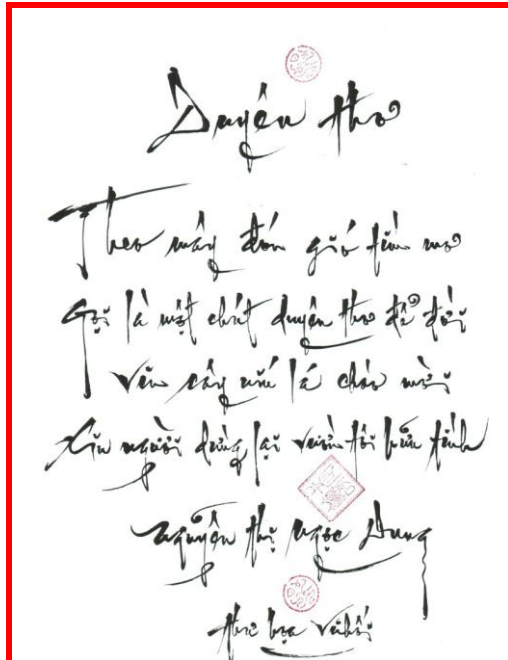 Duyên thơ
Theo mây đón gió tìm mơ
Gọi là một chút duyên thơ để đời
Vin cây níu lá chào mời
Xin người dừng lại vườn tôi hữu tình
Nguyễn thị Ngọc Dung
thư họa Vũ Hối